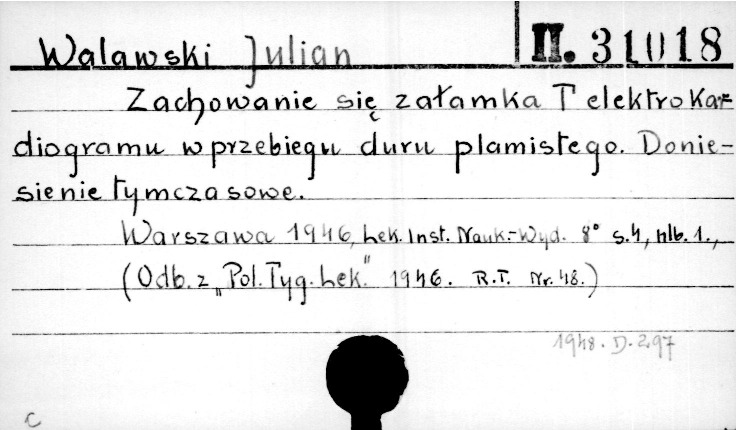 Walawski Julian II. 31018
Zachowanie się załamka T elektrokar=
diogramu w przebiegu duru plamistego. Donie-
sienie tymczasowe.
Warszawa 1946, Lek. Inst. Nauk.-Wyd. 8° s.4, nlb.1.,
(Odb. z "Pol. Tyg. Lek." 1946. R.T. Nr. 48.)
1948. D. 297
C